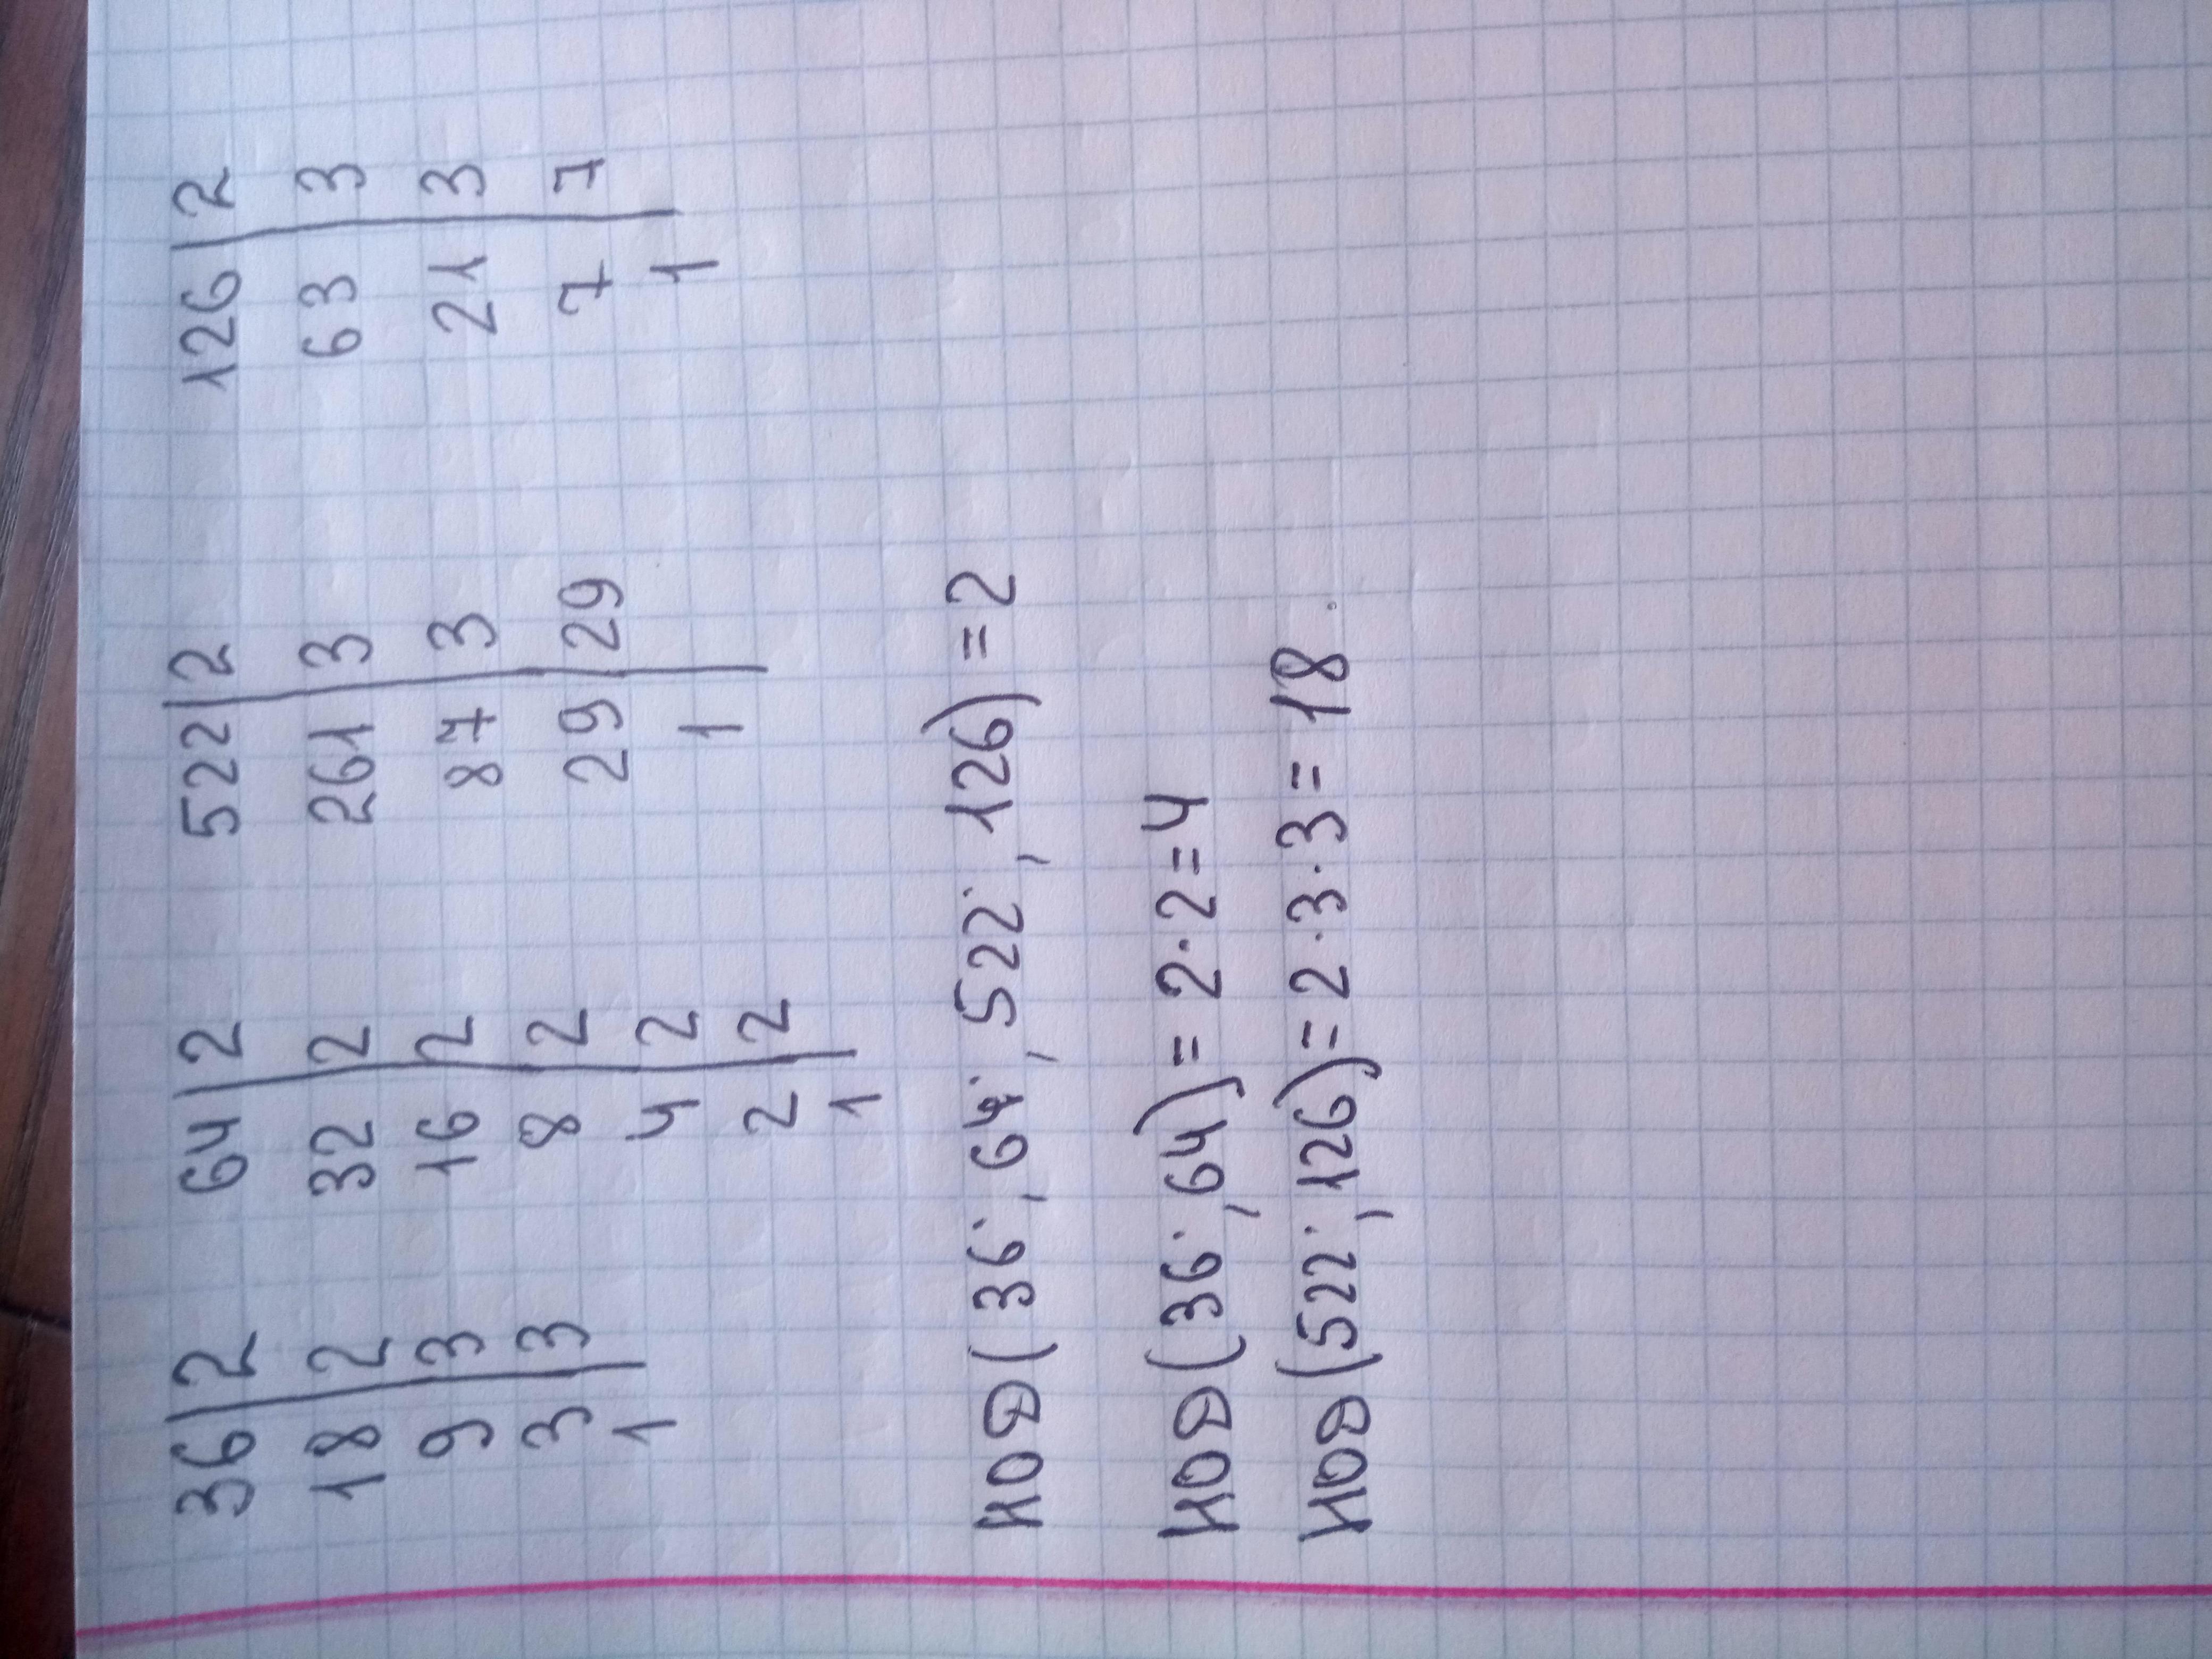 36|2 64|2 522|2 126|2
18|2 32|2 261|3 63|3
9|3 16|2 87|3 21|3
3|3 8|2 29|29 7|7
1| 4|2 1| 1|
2|2
1|
НОД(36; 64; 522; 126)=2
НОД(36; 64)=2·2=4
НОД(522; 126)=2·3·3=18.